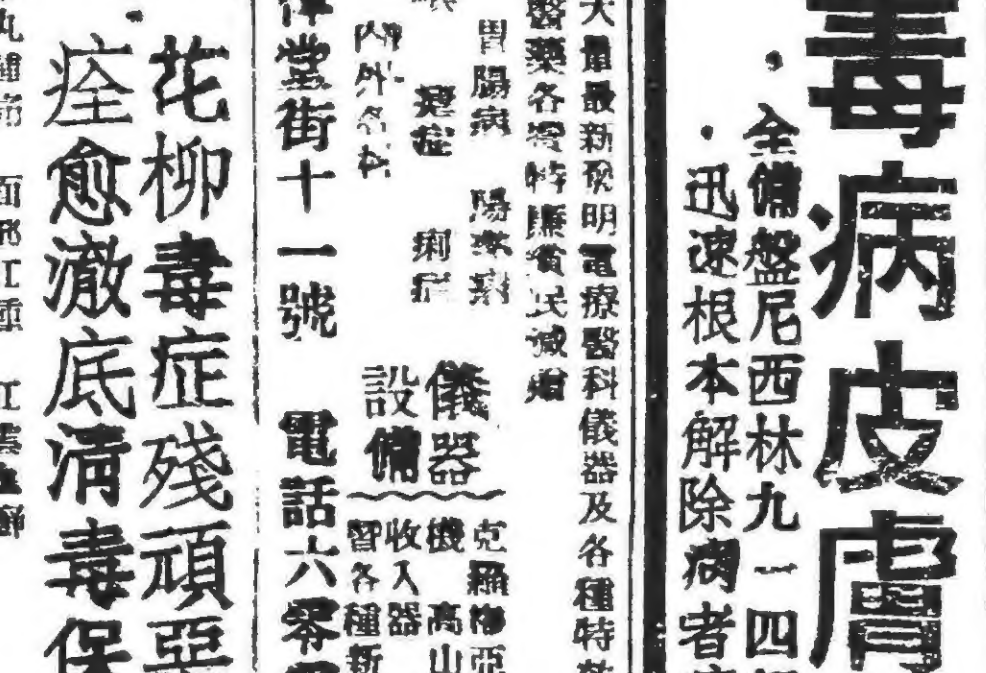 毒病皮膚
全備盤尼西林九一四
迅速根本解除病者
大量最新發明電療醫科儀器及各種特
醫藥各費特廉貧民減
胃腸病
痢症
內外各科
儀器
設備
克羅
機 高山
收入器
各種新
堂街十一號 電話六零
花柳毒症殘頑惡
痊愈澈底清毒保
面部紅腫 紅